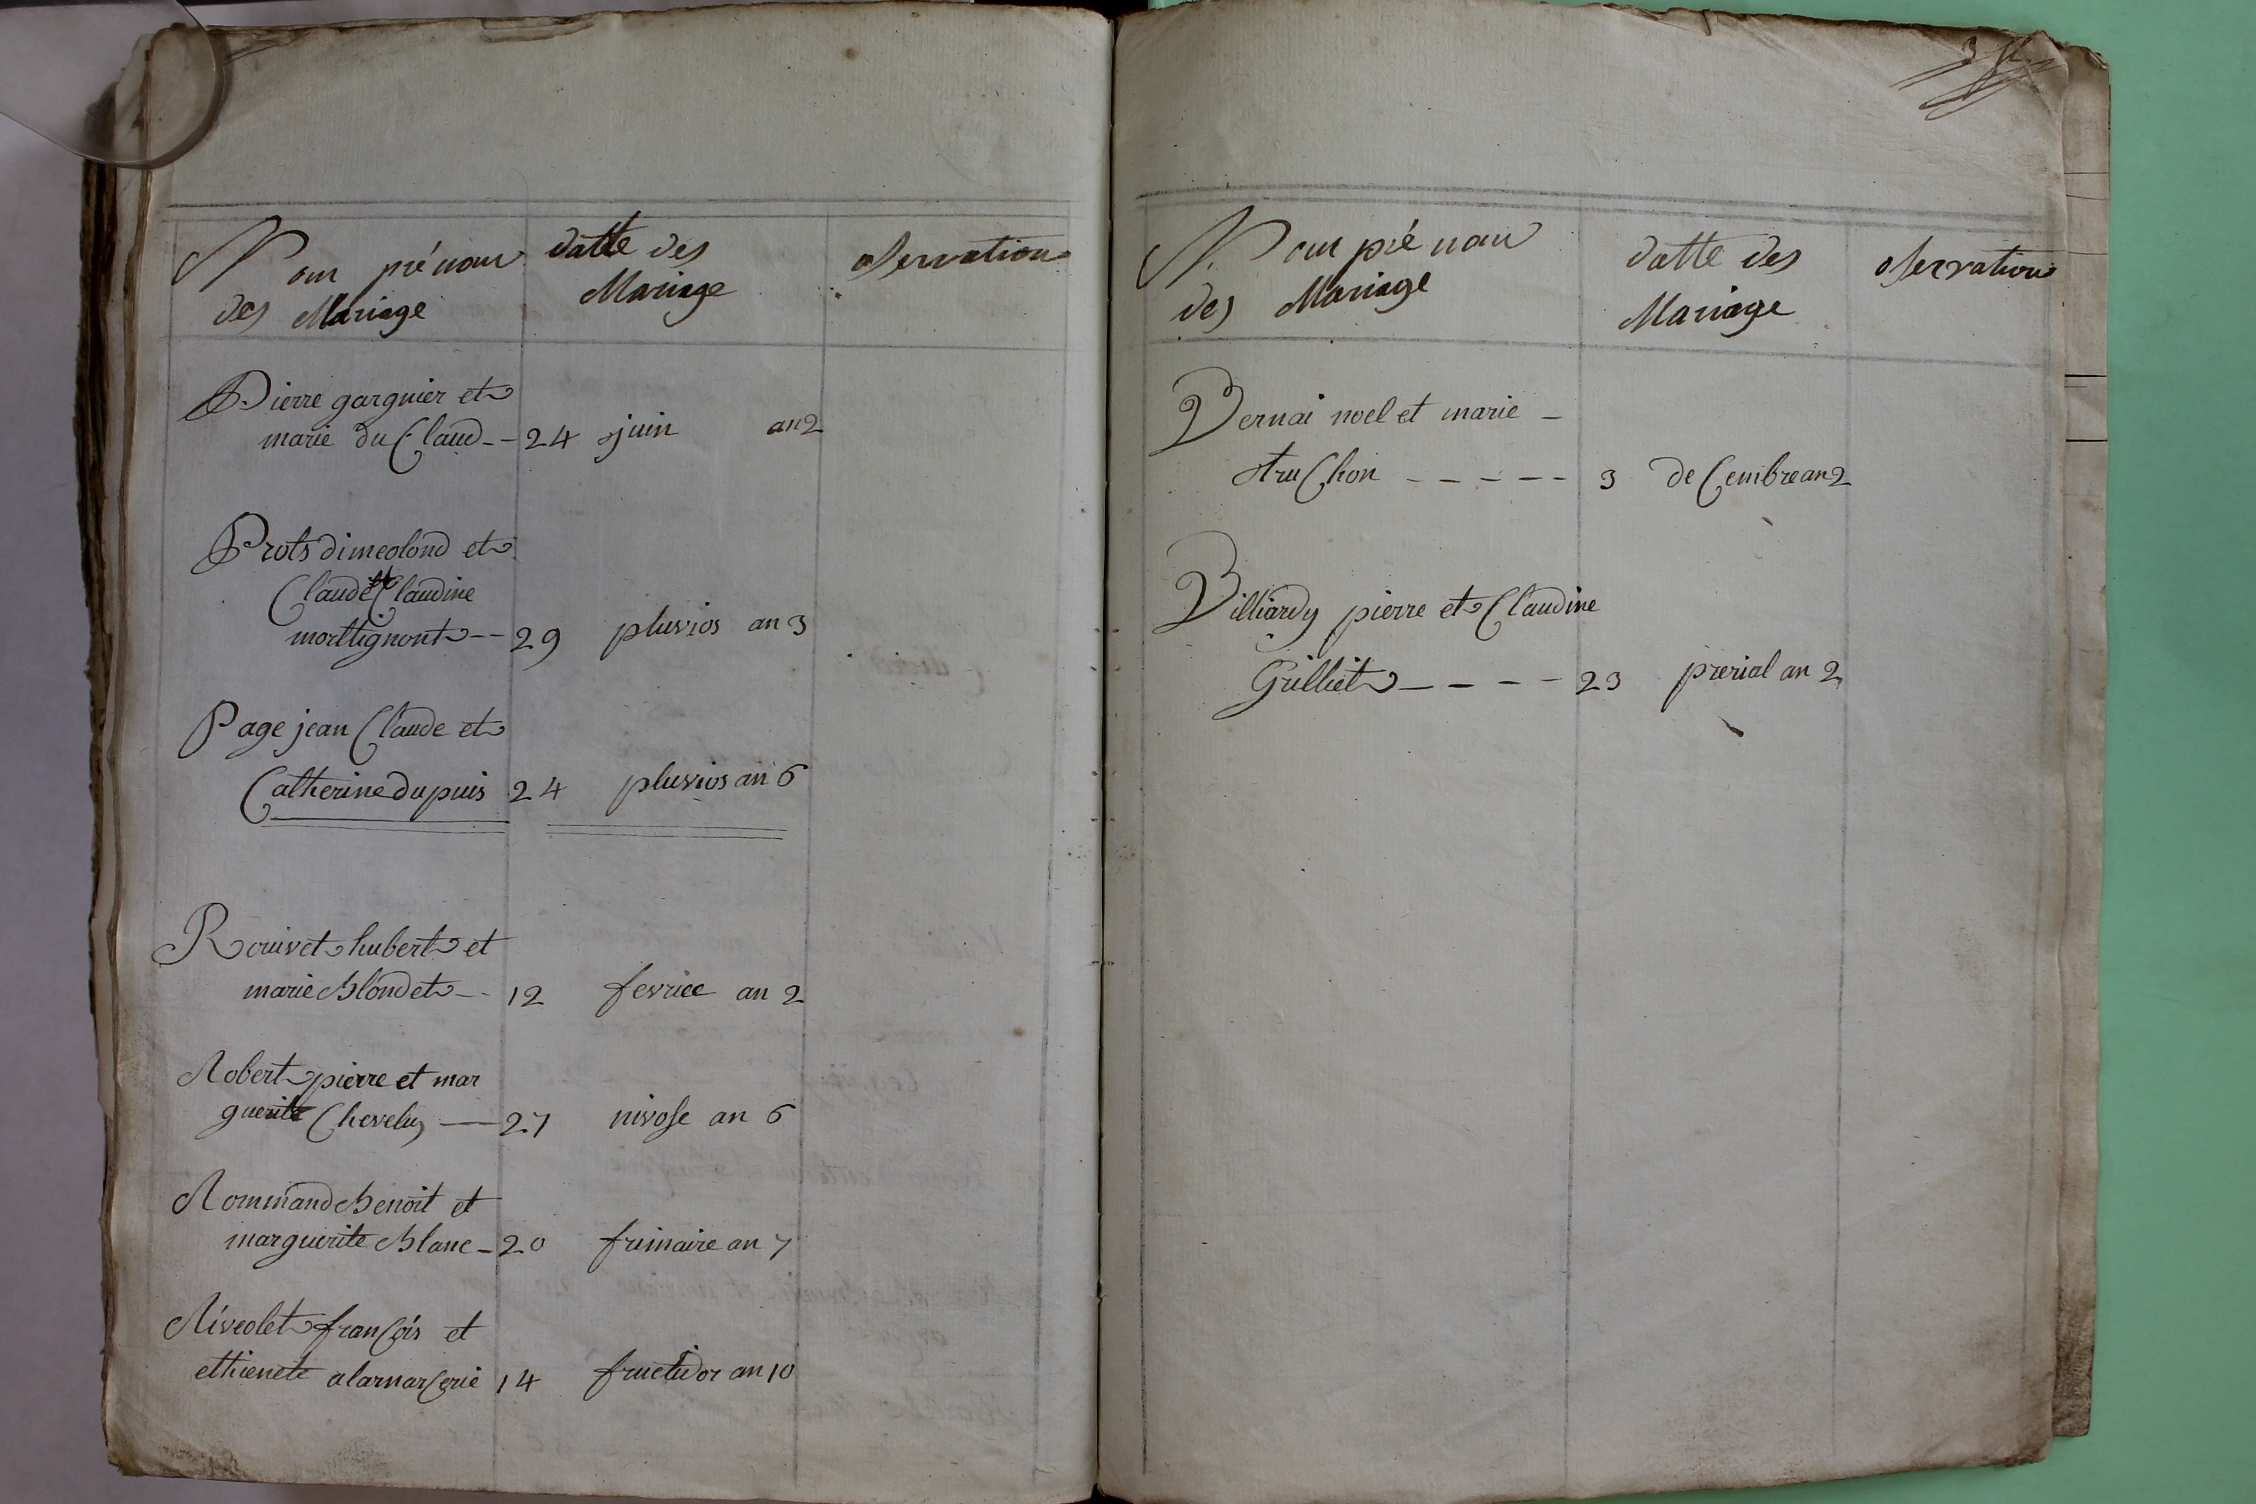 Nom prénom
des Mariage
datte des
Mariage
observation
Pierre garguier et
marie du Claud -- 24 juin an 2
Prots dimeolond et
Claude et Claudine
morttignont -- 29 pluvios an 3
Page jean Claude et
Catherine dupuis 24 pluvios an 6
Rouivet hubert et
marie blondet -- 12 fevriee an 2
Robert pierre et mar
guerite Chevelu — 27 nivose an 6
Rommand benoit et
marguerite blanc - 20 frimaire an 7
Riveolet franscois et
ethienete alamarcerie 14 fructidor an 10
3
Nom pré nom
des Mariage
datte des
Mariage
observation
Vernai noel et marie -
truchon - - - - - 3 decembre an 2
Villiardy pierre et Claudine
Grilliet - - - - 23 prerial an 2